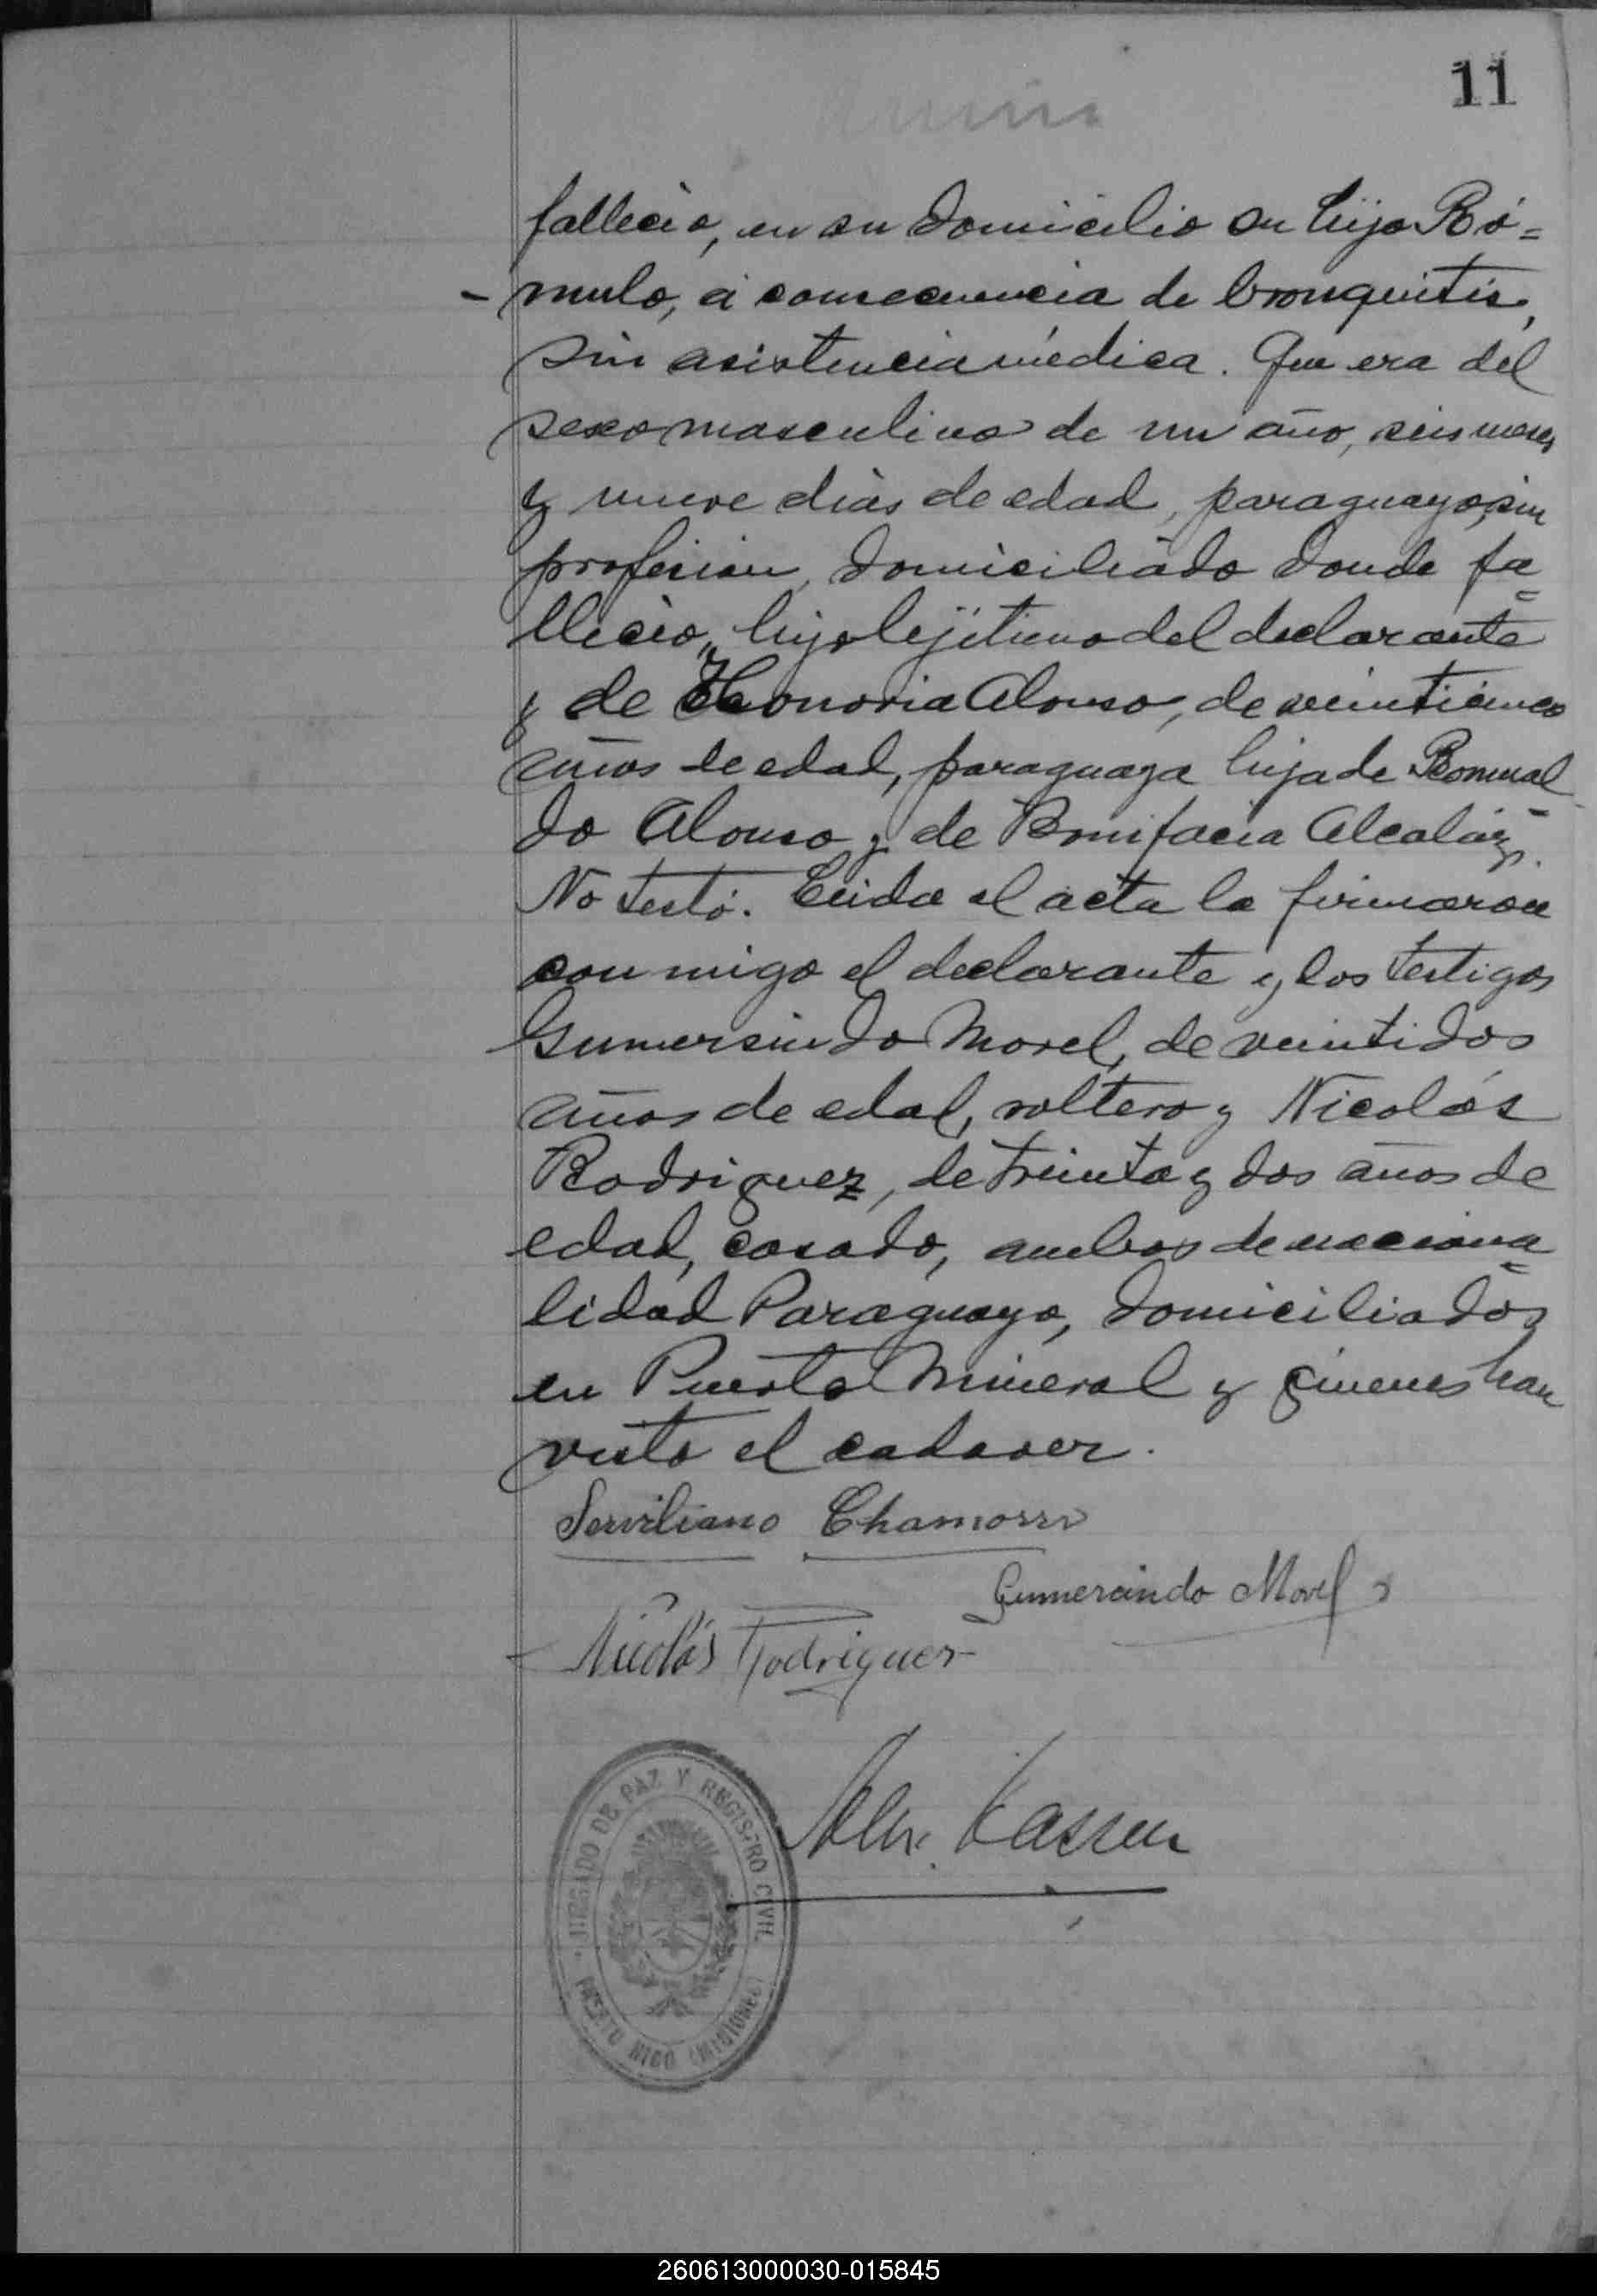 11
falleció, en su domicilio su hijo Ró=
-mulo, á consecuencia de bronquitis,
sin asistencia médica. Que era del
sexo masculino de un año, seis meses
y nueve dias de edad, paraguayo, sin
profesion, domiciliado donde fa=
lleció, hijo lejítimo del declarante
y de Honoria Alonso, de veinticinco
años de edad, paraguaya hija de Romual-
do Alonso y de Bonifacia Alcaláz.
No testó. Leida el acta la firmaron
con migo el declarante y los testigos
Gumersindo Morel, de veintidos
años de edad, soltero y Nicolás
Rodriguez, de treinta y dos años de
edad, casado, ambos de naciona=
lidad Paraguaya, domiciliados
en Puerto Mineral y quienes han
visto el cadaver.
Serviliano Chamorro
Gumersindo Morel
Nicolás Rodriguez
JUZGADO DE PAZ Y REGISTRO CIVIL
PUERTO RICO (MISIONES)
260613000030-015845